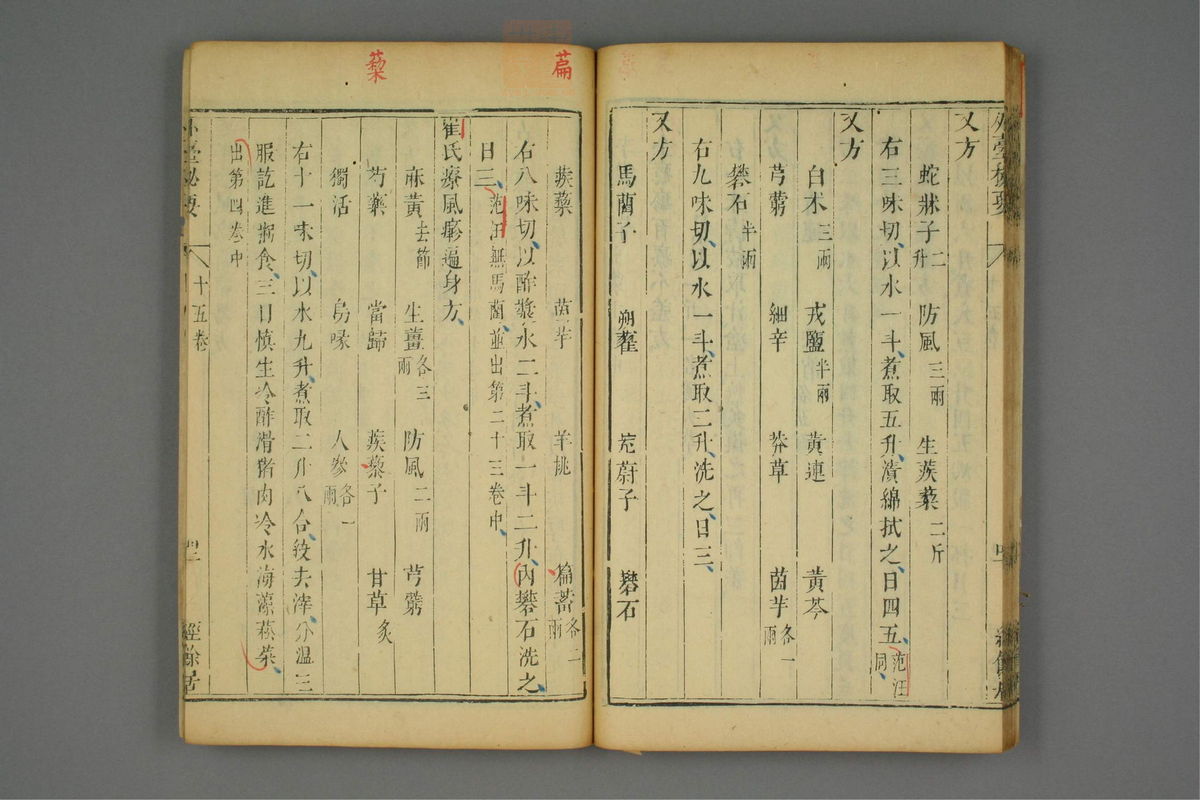 又方
蛇牀子二升 防風三兩 生蒺藜二斤
右三味切以水一斗煮取五升漬綿拭之日四五范汪同
又方
白朮三兩 戎鹽半兩 黃連 黃芩
芎藭 細辛 莽草 茵芋各一兩
礬石半兩
右九味切以水一斗煮取三升洗之日三
又方
馬藺子 蒴藋 茺蔚子 礬石
藥
篇
蒺藜 茵芋 羊桃 篇蓄各二兩
右八味切以酢漿水二斗煮取一斗二升內礬石洗之
日三范汪無馬藺並出第二十三卷中
崔氏療風瘮遍身方
麻黃去節 生薑各三兩 防風二兩 芎藭
芍藥 當歸 蒺藜子 甘草炙
獨活 烏喙 人參各一兩
右十一味切以水九升煮取二升八合絞去滓分溫三
服訖進粥食三日慎生冷酢滑猪肉冷水海藻菘菜
出第四卷中
外臺秘要 十五卷 經餘居